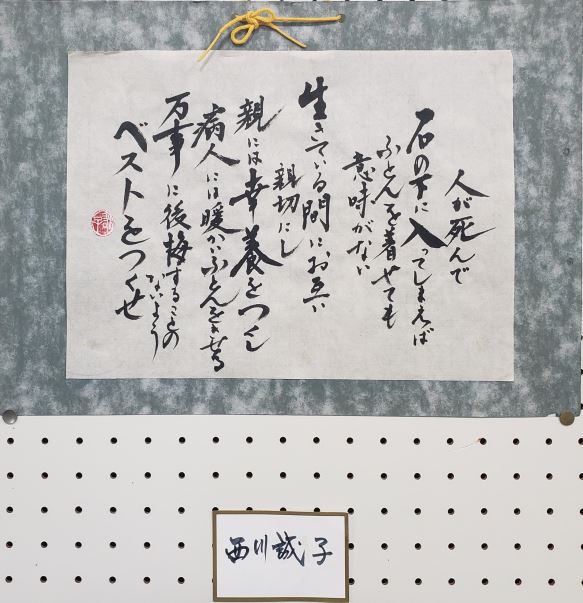 人が死んで
石の下に入ってしまえば
ふとんを着せても
意味がない
生きている間にお互い
親切にし
親には幸養をつくし
病人には暖かいふとんをきせる
万事に後悔することの
ないよう
ベストをつくせ
西川誠子